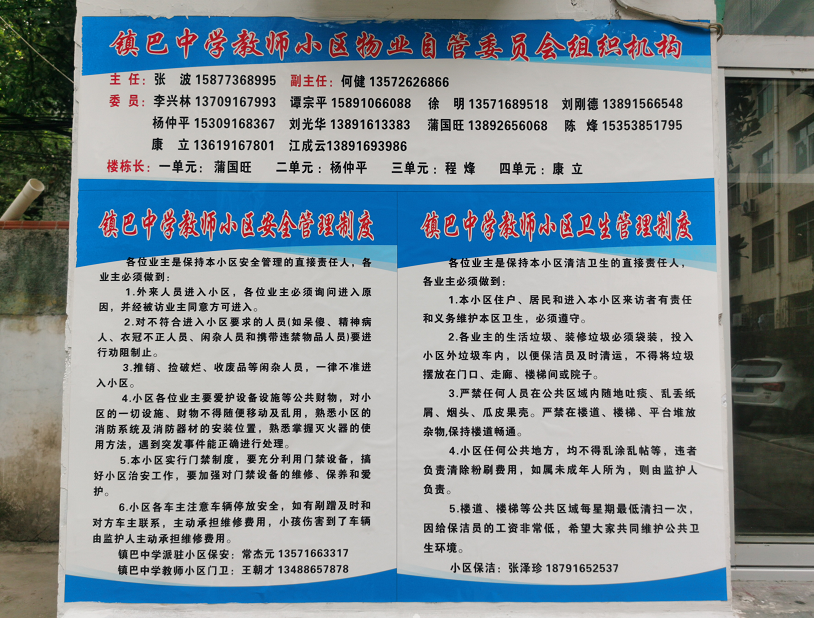 镇巴中学教师小区物业自管委员会组织机构
主 任：张 波 15877368995 副主任：何健 13572626866
委 员：李兴林 13709167993 谭宗平 15891066088 徐 明 13571689518 刘刚德 13891566548
杨仲平 15309168367 刘光华 13891613383 蒲国旺 13892656068 陈 烽 15353851795
康 立 13619167801 江成云13891693986
楼栋长：一单元：蒲国旺 二单元：杨仲平 三单元：程 烽 四单元：康 立
镇巴中学教师小区安全管理制度
各位业主是保持本小区安全管理的直接责任人，各
业主必须做到：
1.外来人员进入小区，各位业主必须询问进入原
因，并经被访业主同意方可进入。
2.对不符合进入小区要求的人员(如呆傻、精神病
人、衣冠不正人员、闲杂人员和携带违禁物品人员)要进
行劝阻制止。
3.推销、捡破烂、收废品等闲杂人员，一律不准进
入小区。
4.小区各位业主要爱护设备设施等公共财物，对小
区的一切设施、财物不得随便移动及乱用，熟悉小区的
消防系统及消防器材的安装位置，熟悉掌握灭火器的使
用方法，遇到突发事件能正确进行处理。
5.本小区实行门禁制度，要充分利用门禁设备，搞
好小区治安工作，要加强对门禁设备的维修、保养和爱
护。
6.小区各车主注意车辆停放安全，如有剐蹭及时和
对方车主联系，主动承担维修费用，小孩伤害到了车辆
由监护人主动承担维修费用。
镇巴中学派驻小区保安：常杰元 13571663317
镇巴中学教师小区门卫：王朝才 13488657878
镇巴中学教师小区卫生管理制度
各位业主是保持本小区清洁卫生的直接责任人，
各业主必须做到：
1.本小区住户、居民和进入本小区来访者有责任
和义务维护本区卫生，必须遵守。
2.各业主的生活垃圾、装修垃圾必须袋装，投入
小区外垃圾车内，以便保洁员及时清运，不得将垃圾
摆放在门口、走廊、楼梯间或院子。
3.严禁任何人员在公共区域内随地吐痰、乱丢纸
屑、烟头、瓜皮果壳。严禁在楼道、楼梯、平台堆放
杂物,保持楼道畅通。
4.小区任何公共地方，均不得乱涂乱帖等，违者
负责清除粉刷费用，如属未成年人所为，则由监护人
负责。
5.楼道、楼梯等公共区域每星期最低清扫一次，
因给保洁员的工资非常低，希望大家共同维护公共卫
生环境。
小区保洁：张泽珍 18791652537